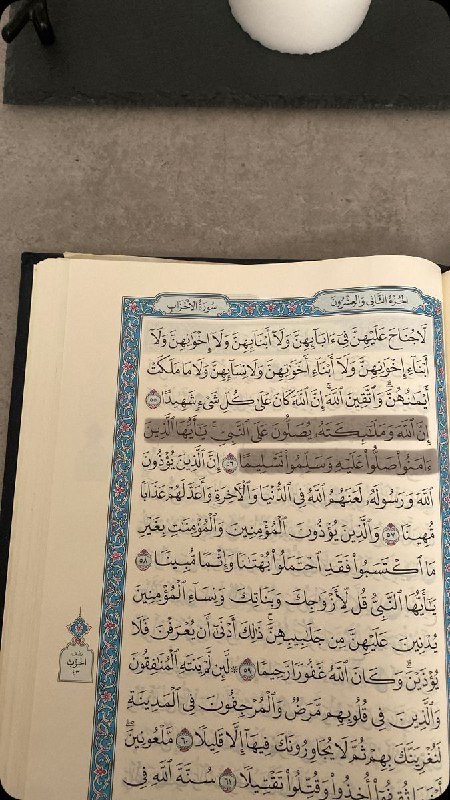 الجزء الثاني والعشرون
سورة الأحزاب
لَّا جُنَاحَ عَلَيْهِنَّ فِىٓ ءَابَآئِهِنَّ وَلَآ أَبْنَآئِهِنَّ وَلَآ إِخْوَٰنِهِنَّ وَلَآ
أَبْنَآءِ إِخْوَٰنِهِنَّ وَلَآ أَبْنَآءِ أَخَوَٰتِهِنَّ وَلَا نِسَآئِهِنَّ وَلَا مَا مَلَكَتْ
أَيْمَٰنُهُنَّ وَٱتَّقِينَ ٱللَّهَ إِنَّ ٱللَّهَ كَانَ عَلَىٰ كُلِّ شَىْءٍ شَهِيدًا ٥٥
إِنَّ ٱللَّهَ وَمَلَٰٓئِكَتَهُۥ يُصَلُّونَ عَلَى ٱلنَّبِىِّ يَٰٓأَيُّهَا ٱلَّذِينَ
ءَامَنُوا۟ صَلُّوا۟ عَلَيْهِ وَسَلِّمُوا۟ تَسْلِيمًا ٥٦ إِنَّ ٱلَّذِينَ يُؤْذُونَ
ٱللَّهَ وَرَسُولَهُۥ لَعَنَهُمُ ٱللَّهُ فِى ٱلدُّنْيَا وَٱلْءَاخِرَةِ وَأَعَدَّ لَهُمْ عَذَابًا
مُّهِينًا ٥٧ وَٱلَّذِينَ يُؤْذُونَ ٱلْمُؤْمِنِينَ وَٱلْمُؤْمِنَٰتِ بِغَيْرِ
مَا ٱكْتَسَبُوا۟ فَقَدِ ٱحْتَمَلُوا۟ بُهْتَٰنًا وَإِثْمًا مُّبِينًا ٥٨
يَٰٓأَيُّهَا ٱلنَّبِىُّ قُل لِّأَزْوَٰجِكَ وَبَنَاتِكَ وَنِسَآءِ ٱلْمُؤْمِنِينَ
يُدْنِينَ عَلَيْهِنَّ مِن جَلَٰبِيبِهِنَّ ذَٰلِكَ أَدْنَىٰٓ أَن يُعْرَفْنَ فَلَا
يُؤْذَيْنَ وَكَانَ ٱللَّهُ غَفُورًا رَّحِيمًا ٥٩ لَّئِن لَّمْ يَنتَهِ ٱلْمُنَٰفِقُونَ
وَٱلَّذِينَ فِى قُلُوبِهِم مَّرَضٌ وَٱلْمُرْجِفُونَ فِى ٱلْمَدِينَةِ
لَنُغْرِيَنَّكَ بِهِمْ ثُمَّ لَا يُجَاوِرُونَكَ فِيهَآ إِلَّا قَلِيلًا ٦٠ مَّلْعُونِينَ
أَيْنَمَا ثُقِفُوٓا۟ أُخِذُوا۟ وَقُتِّلُوا۟ تَقْتِيلًا ٦١ سُنَّةَ ٱللَّهِ فِى